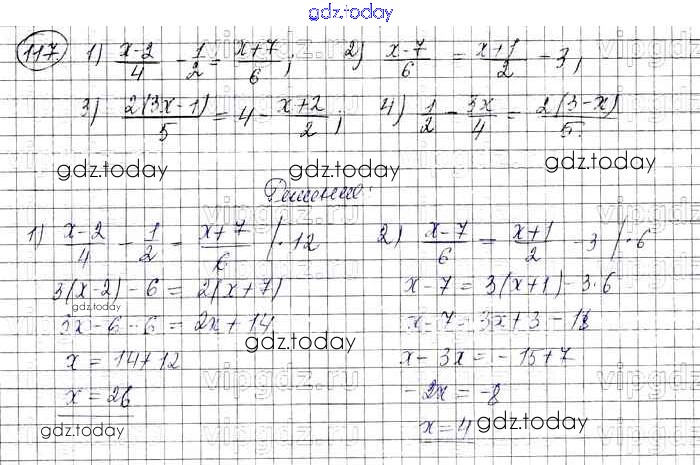 gdz.today
117. 1) (x-2)/4 - 1/2 = (x+7)/6; 2) (x-7)/6 = (x+1)/2 - 3;
3) 2(3x-1)/5 = 4 - (x+2)/2; 4) 1/2 - 3x/4 = 2(3-x)/5
gdz.today gdz.today gdz.today
Решение:
1) (x-2)/4 - 1/2 = (x+7)/6 /·12 2) (x-7)/6 = (x+1)/2 - 3 /·6
3(x-2) - 6 = 2(x+7) x-7 = 3(x+1) - 3·6
gdz.today
3x - 6 - 6 = 2x + 14 x-7 = 3x+3 - 18
gdz.today
x = 14+12 x - 3x = -15+7
x = 26 -2x = -8
gdz.today x = 4 gdz.today
vipgdz.ru